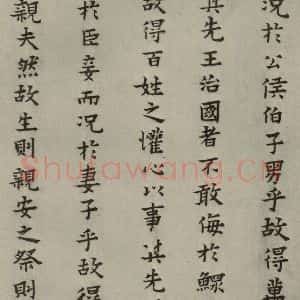 況於公侯伯子男乎故得萬
其先王治國者不敢侮於鰥
故得百姓之懽心以事其先
於臣妾而況於妻子乎故得
親夫然故生則親安之祭則
Shufawang.cn